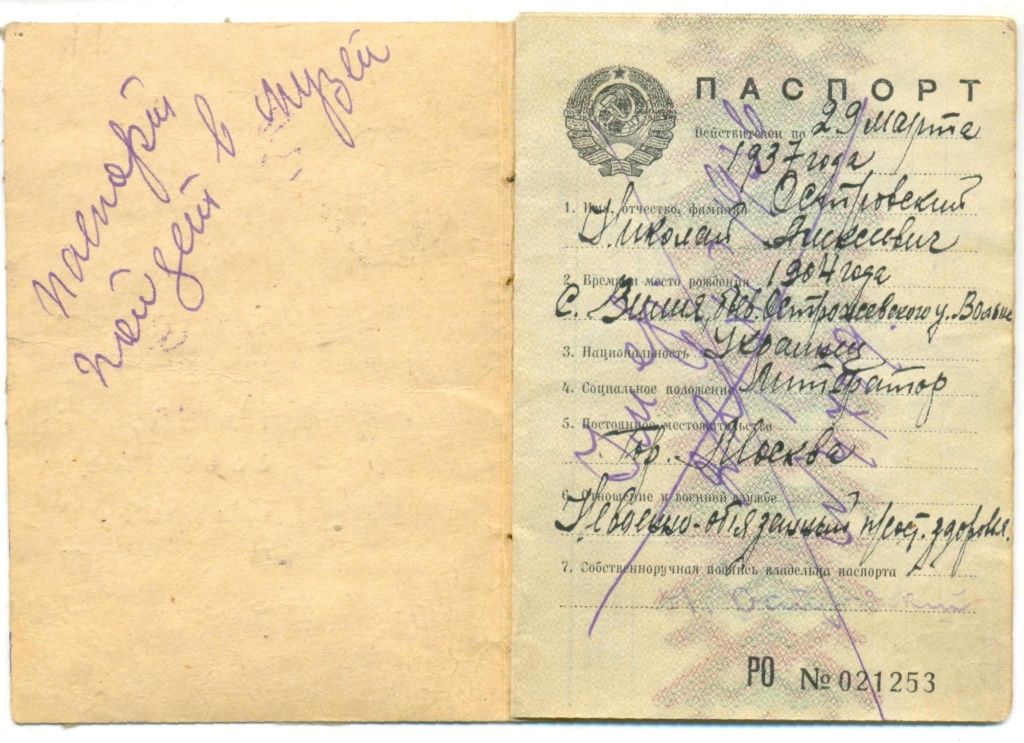 паспорт
пойдет в музей
ПАСПОРТ
Действителен по 29 марта
1937 года
1. Имя, отчество, фамилия Островский
Николай Алексеевич
2. Время и место рождения 1904 года
с. Вилия, Остр у. Волын
3. Национальность Украинец
4. Социальное положение Литератор
5. Постоянное местожительство
Гор. Москва
6. Отношение к военной службе
Невоенно-обязанный здоровья.
7. Собственноручная подпись владельца паспорта
Островский
РО № 021253
Умер